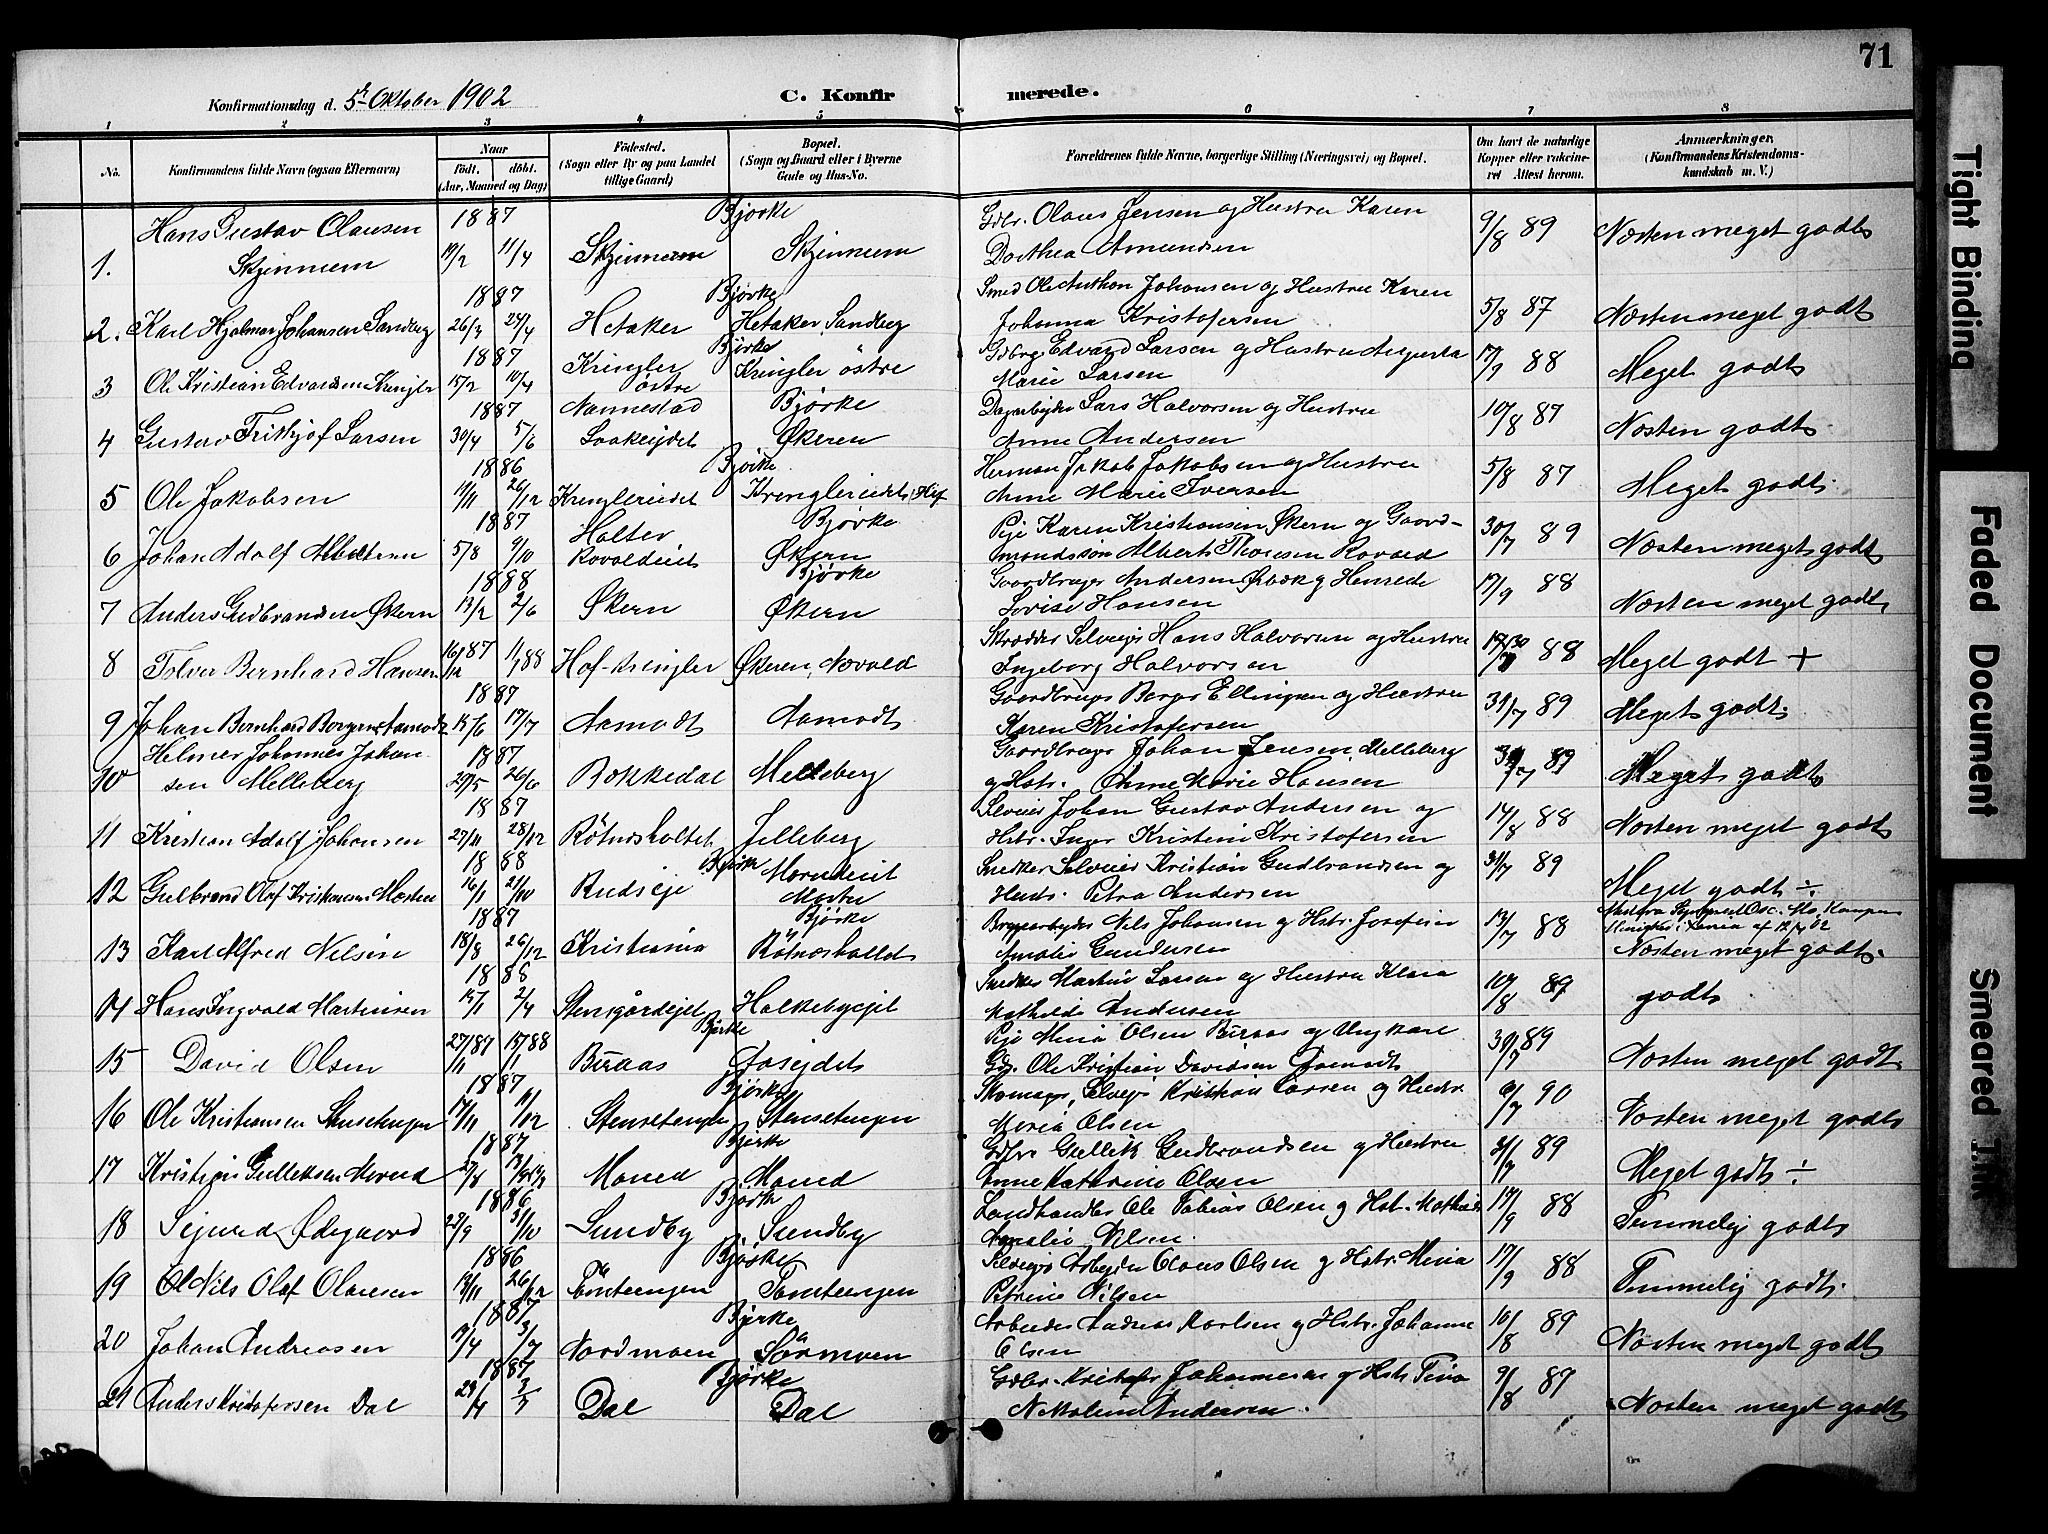 71
Konfirmationsdag d. 5t Oktober 1902
C. Konfir merede.
1 2 3 4 5 6 7 8
No. Konfirmandens fulde Navn (ogsaa Efternavn)
Naar Födt. döbt. (Aar, Maaned og Dag)
Födested. (Sogn eller By og paa Landet tillige Gaard)
Bopæl. (Sogn og Gaard eller i Byerne Gade og Hus-No.
Forældrenes fulde Navne, borgerlige Stilling (Næringsvei) og Bopæl.
Om havt de naturlige Kopper eller vakcineret Attest herom.
Anmærkninger, (Konfirmandens Kristendomskundskab m. V.)
Hans Gustav Olausen 1887 Bjørke Gdbr. Olaus Jensen og Hustru Karen
1. Skjennem 19/2 11/4 Skjennem Skjennem Dorthea Amundsen 9/8 89 Næsten meget godt
1887 Bjørke Smed Ole Anthon Johansen og Hustru Karen
2. Karl Hjalmar Johansen Sandberg 26/3 24/4 Hetaker Hetaker, Sandberg Johanna Kristofersen 5/8 87 Næsten meget godt
1887 Kringler Bjørke Gdbrg. Edvard Larsen og Hustru Augusta
3 Ole Kristian Edvardsen Kringler 15/2 10/4 østre Kringler østre Marie Larsen 17/9 88 Meget godt
1887 Nannestad Bjørke Lars Halvorsen og Hustru
4 Gustav Frithjof Larsen 30/4 5/6 Økeren Anne Andersen 10/8 87 Næsten godt
1886 Bjørke Herman Jakob Jakobsen og Hustru
5 Ole Jakobsen 11/11 26/12 Kringlereidet Kringlereidet, Hof Anne Marie Iversen 5/8 87 Meget godt
1887 Holter Bjørke Pige Karen Kristiansen Økern og Gaard-
6 Johan Adolf Albertsen 5/8 9/10 Rovaldeiet Økern mandssøn Albert Thoresen Rovald 30/7 89 Næsten meget godt
1888 Bjørke Gaardbruger Andersen
7 Anders Gudbrandsen Økern 13/2 2/6 Økern Økern Lovise Hansen 17/9 88 Næsten meget godt
8 Bernhard Hansen 16/12 87 11/1 88 Hof-Kringler Økeren, Nævald Skrædder Selveier Hans Halvorsen og Hustru Ingeborg Halvorsen 88 Meget godt +
1887 Gaardbruger Borger Ellingsen og Hustru
9 Johan Bernhard Borgersen Aamodt 15/6 17/7 Aamodt Aamodt Karen Kristofersen 31/7 89 Meget godt
Helmer Johannes Johan- 1887 Gaardbruger Johan Jensen Melleberg
10 sen Melleberg 29/5 26/6 Bokkedal Melleberg og Hstr. Anne Marie Hansen 31/7 89 Meget godt
1887 Selveier Johan Gustav Andersen og
11 Kristian Adolf Johansen 27/11 28/12 Røtnesholtet Jelleberg Hstr. Inger Kristine Kristofersen 14/8 88 Næsten meget godt
1888 Bjørke Snedker Selveier Kristian Gudbrandsen og
12 Gulbrand Olaf Kristiansen Mostue 16/1 21/10 Rudseje Morudeiet Mostue Hustr. Petra Andersen 31/7 89 Meget godt ÷
1887 Bjørke Nils Johansen og Hstr. Josefine
13 Karl Alfred Nilsen 18/8 26/12 Kristiania Røtnesholtet Amalie Gundersen 13/7 88 Næsten meget godt
1888 Snedker Martin Larsen og Hustru Klara
14 Hans Ingvald Martinsen 15/1 2/4 Stensgårdejet Holkebyejet Mathilde Andersen 10/8 89 godt
Bjørke Pige Mina Olsen Buraas og Ungkarl
15 David Olsen 27/11 87 15/1 88 Buraas Aasejdet Gbr. Ole Kristian Davidsen Aamodt 30/7 89 Næsten meget godt
1887 Bjørke Skomager, Selvejer Kristian Larsen og Hustr.
16 Ole Kristiansen Stensetengen 17/11 11/12 Stensetengen Stensetengen Maria Olsen 6/7 90 Næsten meget godt
1887 Bjørke Gdbr. Gullik Gudbrandsen og Hustru
17 Kristian Gulleksen Morud 27/8 Morud Morud Anne Kathrine Olsen 89 Meget godt ÷
1886 Bjørke Landhandler Ole Tobias Olsen og Hst. Mathilde
18 Sigurd Ødegaard 23/9 31/10 Sundby Sundby Amalie Nilsen 17/9 88 Temmelig godt
1886 Bjørke Selvejer Arbejder Olaus Olsen og Hstr. Mina
19 Nils Olaf Olausen 13/11 26/12 Tømteengen Tomteengen Petrine Nilsen 17/9 88 Temmelig godt
1887 Bjørke Arbeider Andreas Karlsen og Hstr. Johanne
20 Johan Andreasen 19/4 3/7 Nordmoen Sørmoen Olsen 16/8 89 Næsten meget godt
1887 Bjørke Gdbr. Kristofer Johannesen og Hstr. Tina
21 Anders Kristofersen Dal Dal Dal Nikoline Andersen 9/8 89 Næsten meget godt
Tight Binding
Faded Document
Smeared Ink